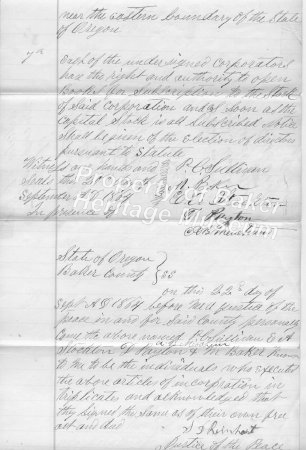 near the eastern boundary of the State
of Oregon
7th each of the undersigned corporators
has the right and authority to open
Books for Subscription to the Stock
of Said Corporation and as soon as the
capital Stock is all Subscribed notice
shall be given of the Election of directors
pursuant to Statute
Witness our hands and P. C. Sullivan
Seals this
September A D 1864
In presence of
Property of Baker
Heritage Museum
State of Oregon
Baker County } SS
on this 22d day of
Sept A D 1864 before me a Justice of the
peace in and for Said County personally
Came the above named P C Sullivan
Stockton Payton & Baker known
to me to be the individuals who executed
the above articles of incorporation in
triplicates and acknowledged that
they signed the same as of their own free
act and deed
S Rinehart
Justice of the Peace